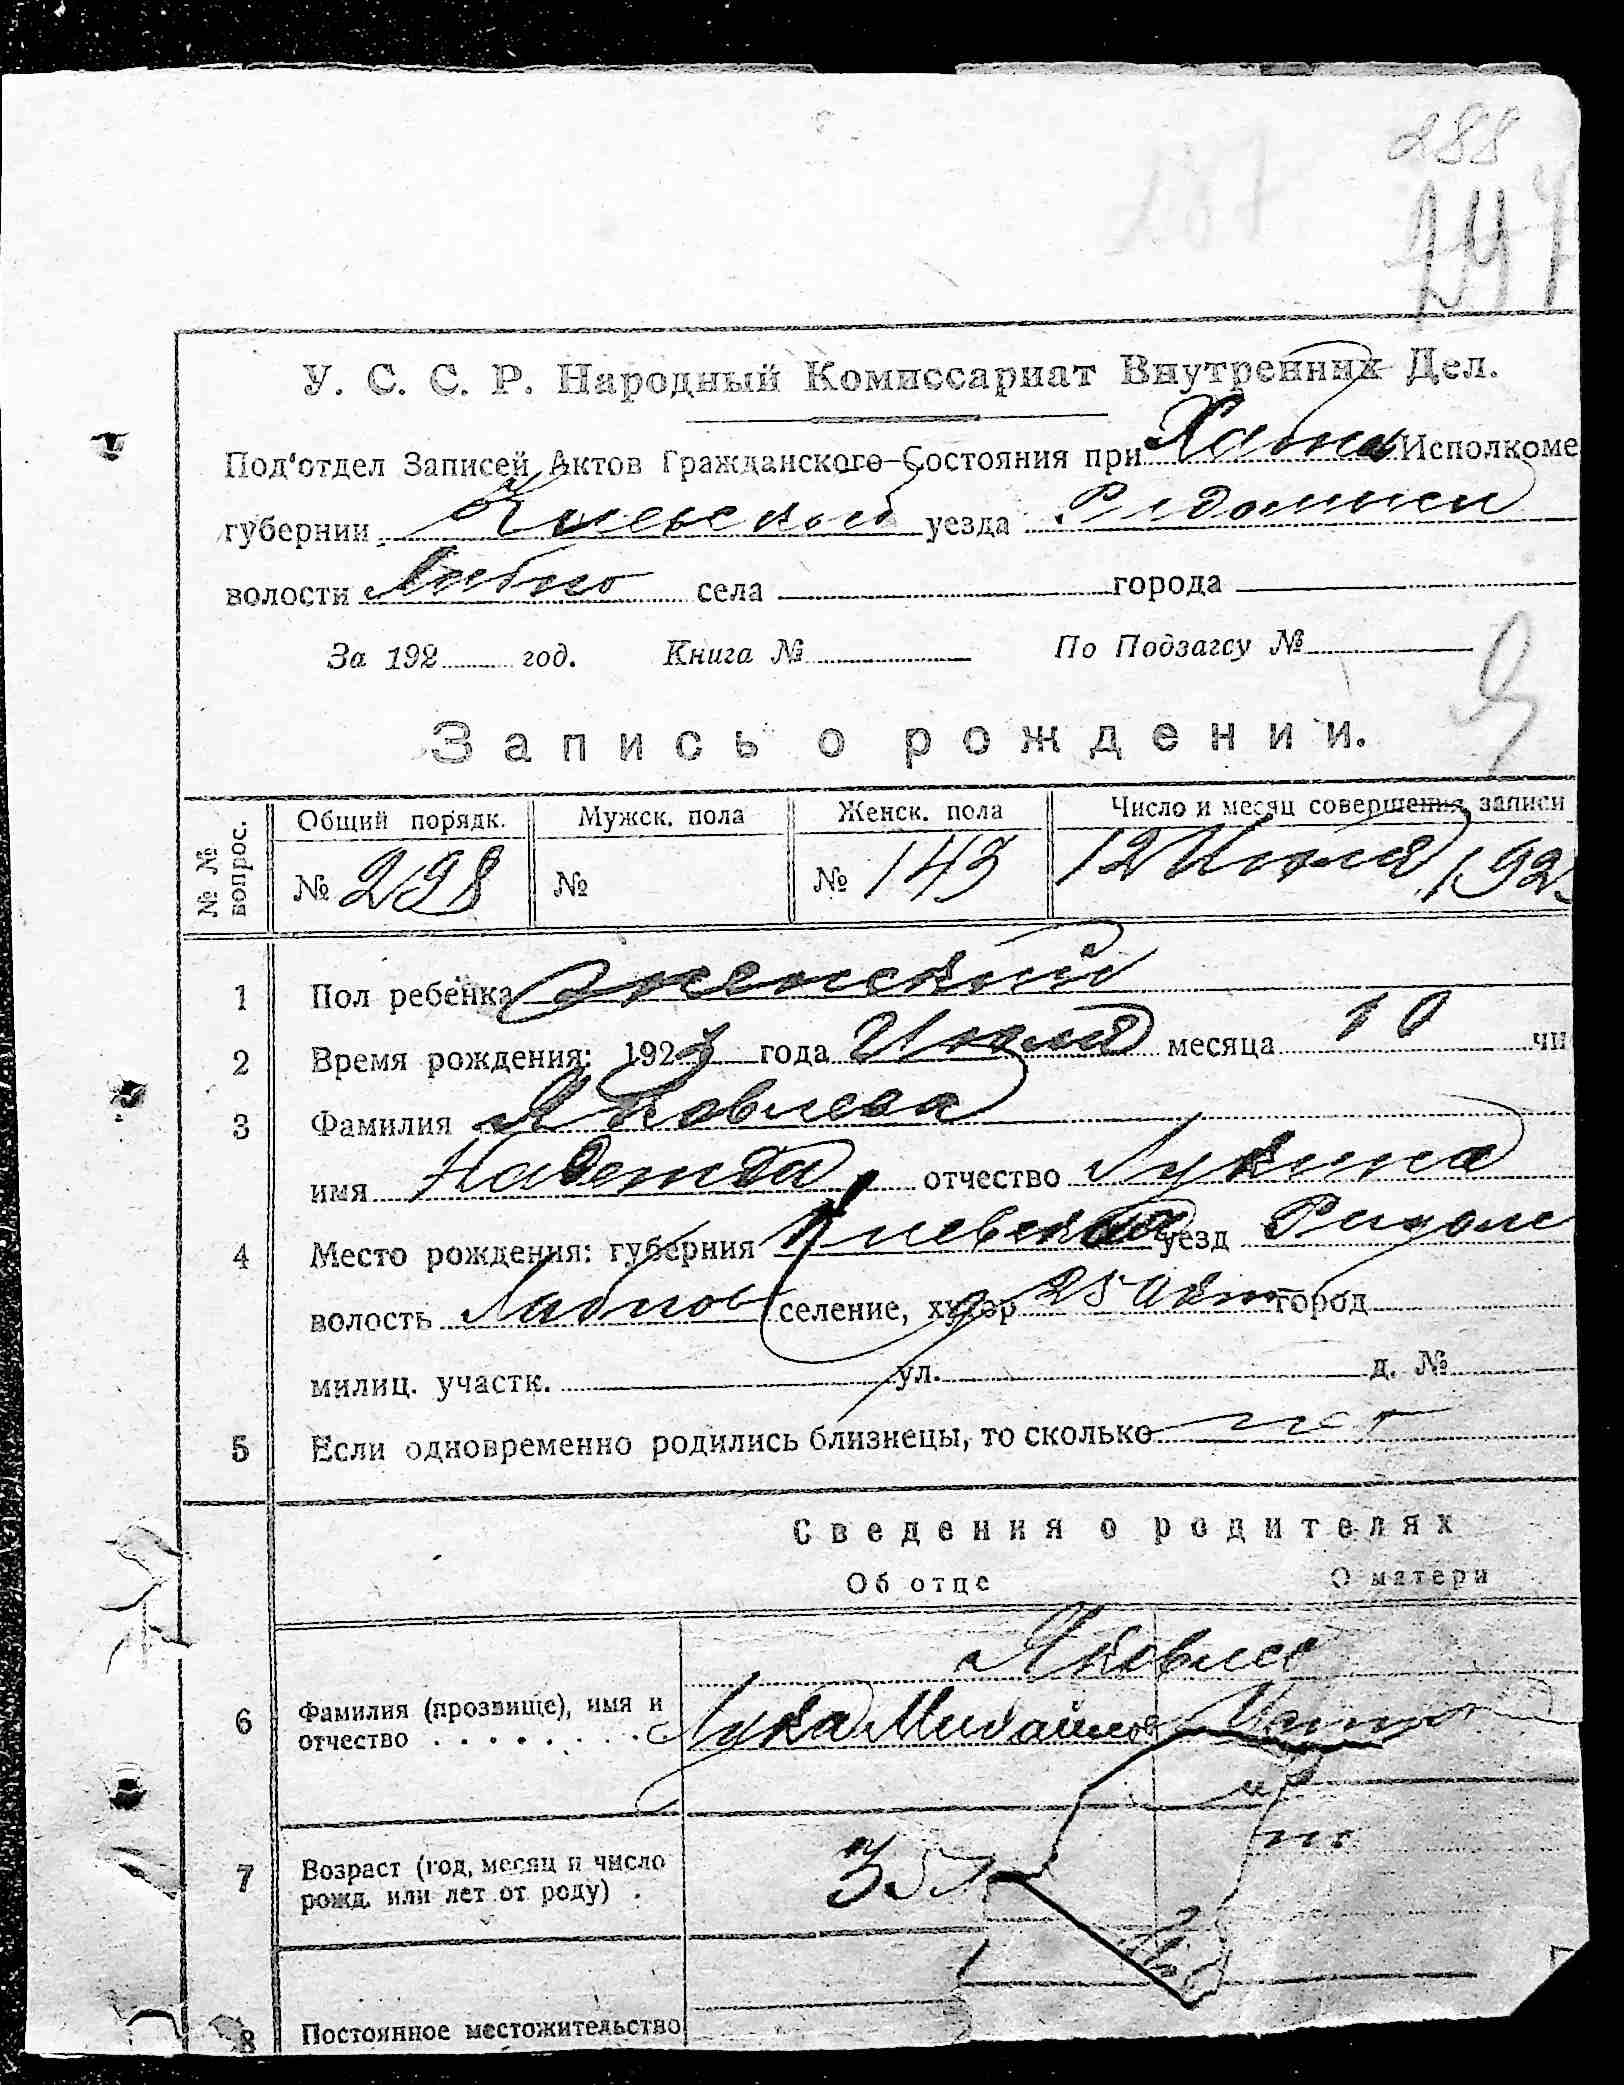 288
У. С. С. Р. Народный Комиссариат Внутренних Дел.
Под'отдел Записей Актов Гражданского Состояния при Хабн Исполкоме
губернии Киевской уезда
волости села города
За 192 год. Книга № По Подзагсу №
Запись о рождении.
№ № вопрос. Общий порядк. Мужск. пола Женск. пола Число и месяц совершения записи
№ 298 № № 143 12 Июля 192
1 Пол ребенка женский
2 Время рождения: 1923 года Июля месяца 10 чи
3 Фамилия Яковлева
имя Надежда отчество Лукина
4 Место рождения: губерния Киевская уезд
волость селение, хутор 25 Окт город
милиц. участк. ул. д. №
5 Если одновременно родились близнецы, то сколько нет
Сведения о родителях
Об отце О матери
Яковлев
6 Фамилия (прозвище), имя и
отчество . . . . . . . . Лука Михайлов
7 Возраст (год, месяц и число
рожд. или лет от роду) . 35 л
8 Постоянное местожительство